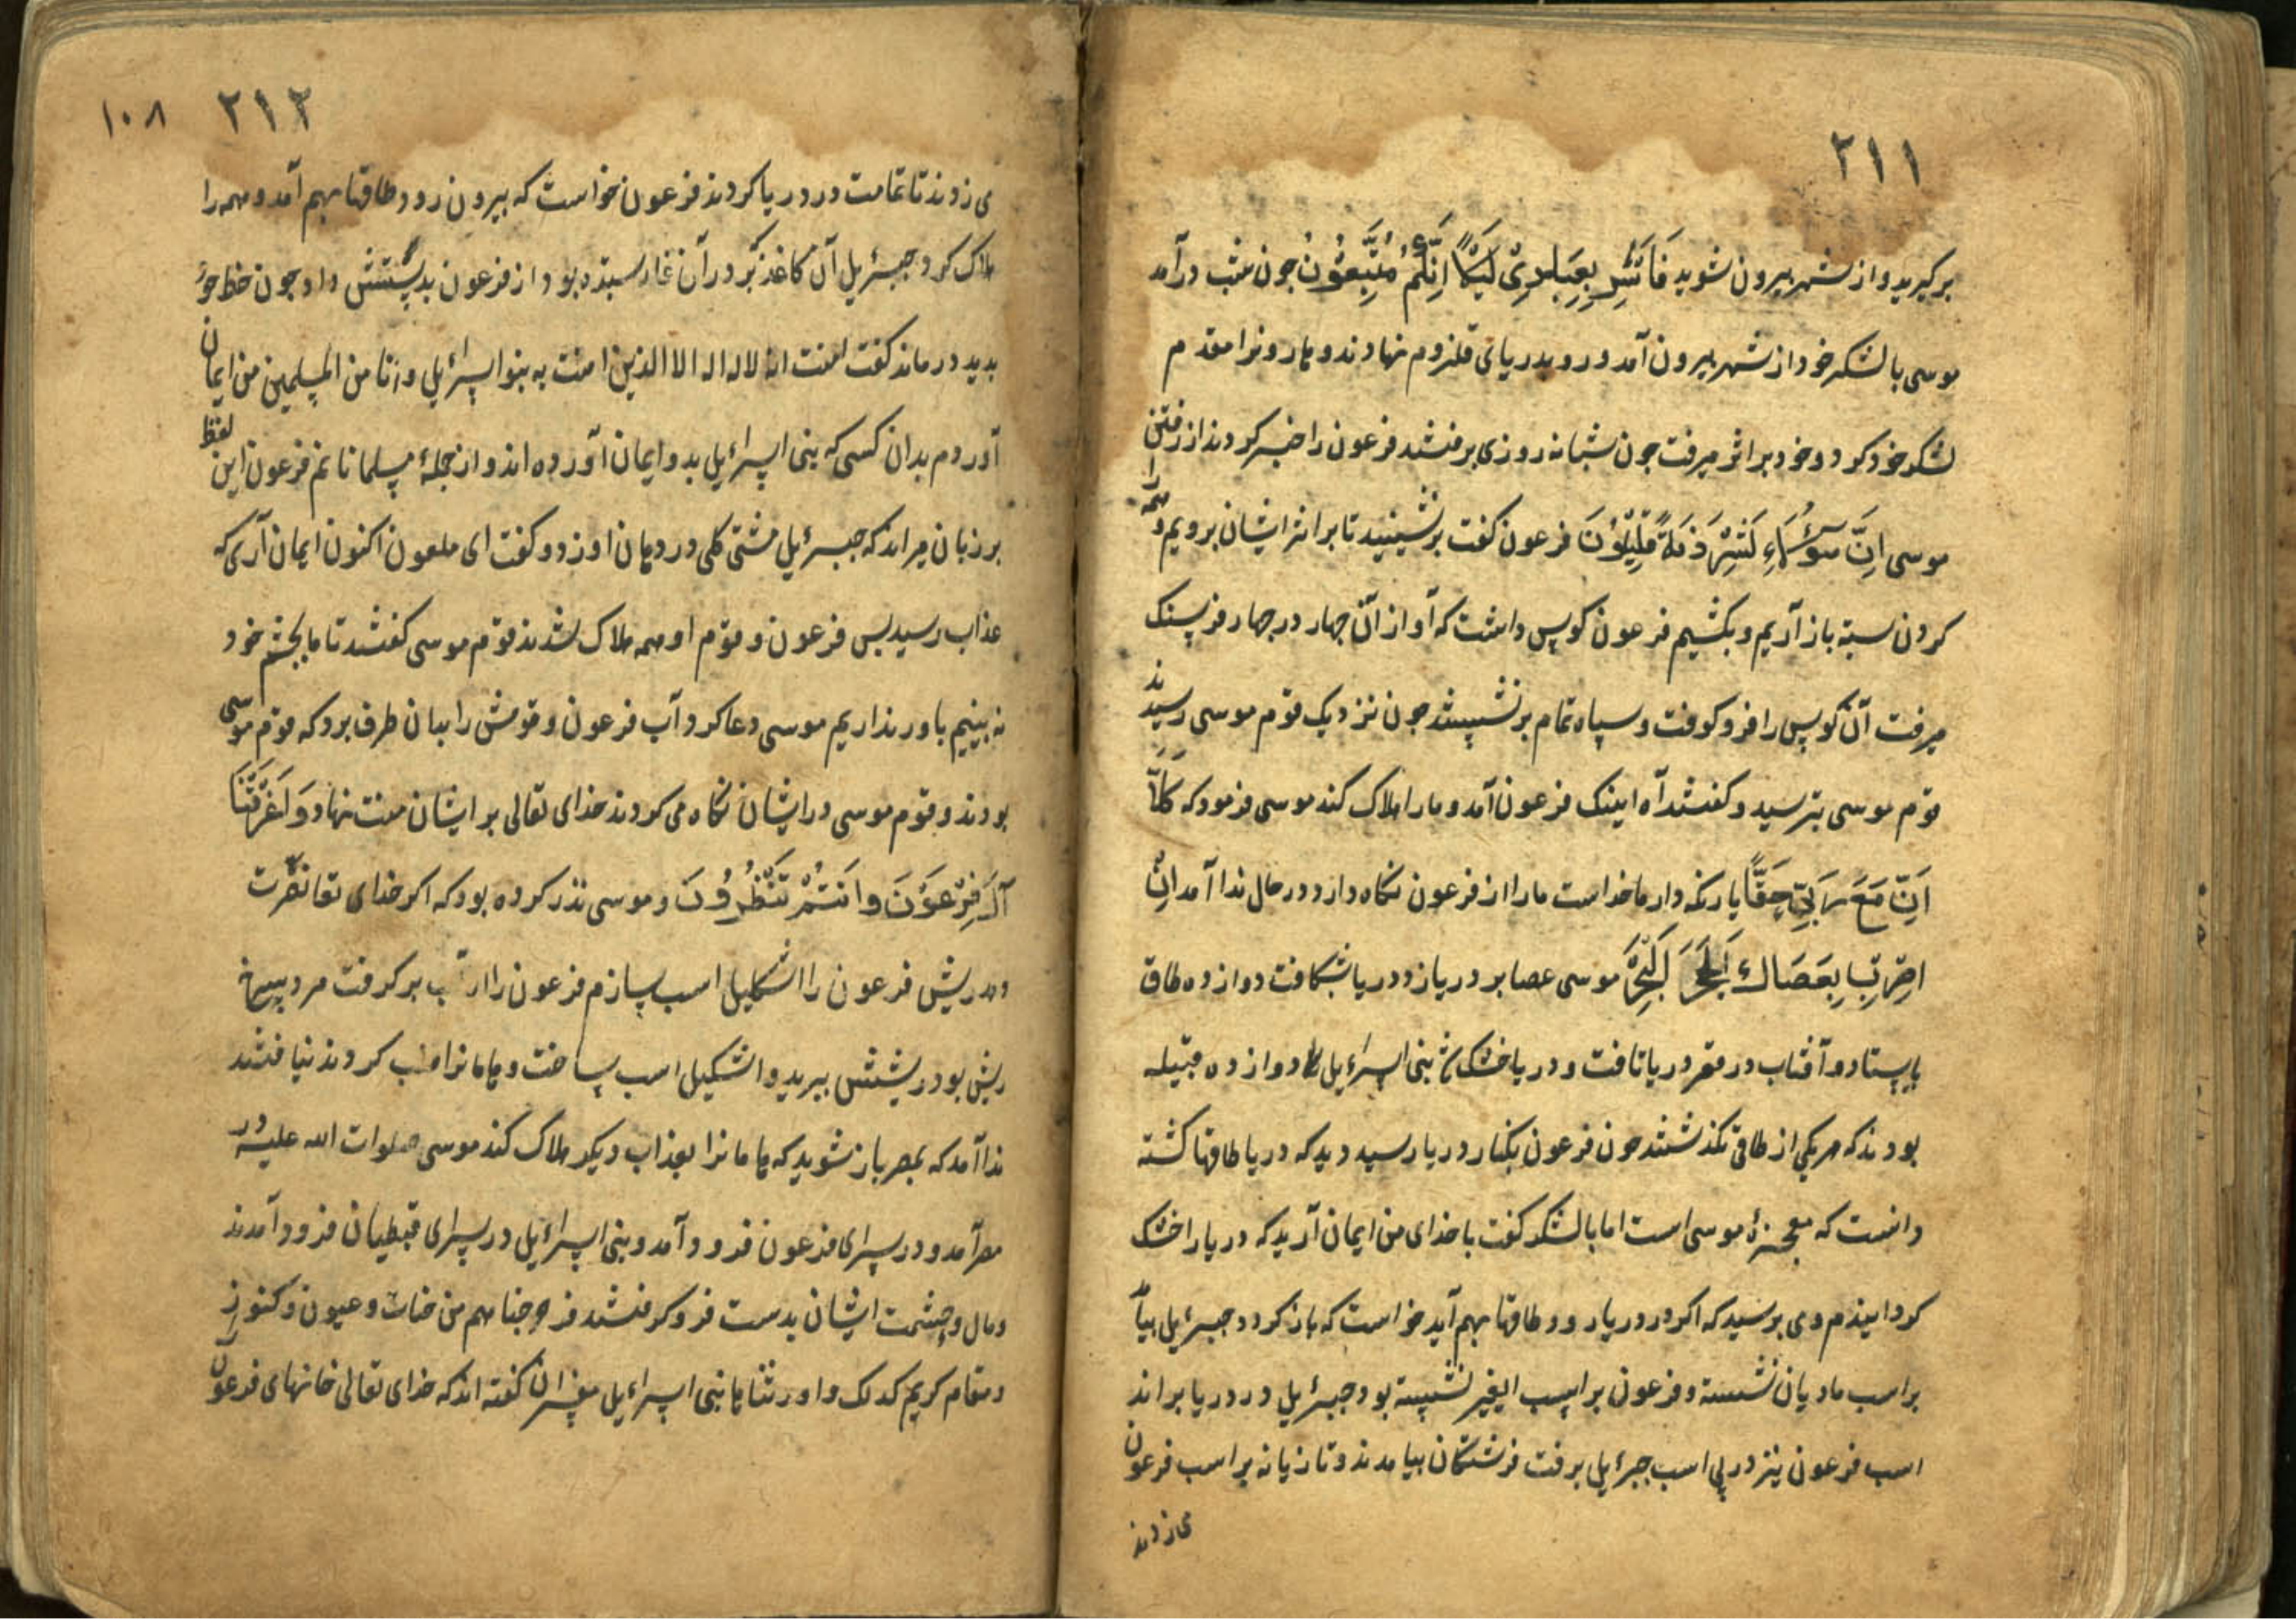 ۲۱۱
برگیرید و از شهر بیرون شوید فَاَسْرِ بِعِبَادِیْ لَیْلًا اِنَّکُمْ مُتَّبَعُوْنَ چون شب درآمد
موسی با لشکر خود از شهر بیرون آمد و رو بدریای قلزوم نهادند و هارونرا مقدم
لشکر خود کرد و خود بر اثر میرفت چون شبانه روزی برفتند فرعون را خبر کردند از رفتن
موسی اِنَّ هٰٓؤُلَاءِ لَشِرْذِمَةٌ قَلِیْلُوْنَ فرعون کفت برنشینید تا بر اثر ایشان برویم و همه را
کردن بسته باز آریم و بکشیم فرعون کوس داشت که آواز آن چهار در چهار فرسنک
میرفت آن کوس را فرو کوفت و سپاه تمام برنشستند چون نزدیک قوم موسی رسیدند
قوم موسی بترسید و کفتند آه اینک فرعون آمد و ما را هلاک کند موسی فرمود که کَلَّا
اِنَّ مَعَ رَبِّیْ حَقًّا یار نکه دار ما خداست ما را از فرعون نکاه دارد در حال ندا آمد اَنِ
اضْرِبْ بِعَصَاكَ الْبَحْرَ موسی عصا بر دریا زد و دریا بشکافت دوازده طاق
بایستاد و آفتاب در قعر دریا تافت و دریا خشک شد بنی اسرائیل را دوازده قبیله
بودند که هر یکی از طاقی بکذشتند چون فرعون بکنار دریا رسید دید که دریا طاقها کشته
دانست که معجزۀ موسی است اما با لشکر کفت با خدای من ایمان آرید که دریا را خشک
کردانیدم و می ترسید که اکر در دریا رود طاقها بهم آید خواست که باز کردد جبرئیل بیامد
بر اسب مادیان نشسته و فرعون بر اسب ایغر نشسته بود جبرئیل در دریا براند
اسب فرعون نیز در پی اسب جبرئیل برفت فرشتکان بیامدند و تازیانه بر اسب فرعون
می زدند
۲۱۲ ۱۰۸
می زدند تا تمامت در دریا کردند فرعون خواست که بیرون رود طاقها بهم آمد و همه را
هلاک کرد جبرئیل آن کاغذ که در آن غار ستده بود از فرعون بدستش داد چون خط خود
بدید درماند کفت امنت انه لا اله الا الذین امنت به بنوا اسرائیل وانا من المسلمین من ایمان
آوردم بدان کسی که بنی اسرائیل بدو ایمان آورده اند و از جملۀ مسلمانانم فرعون این لفظ
بر زبان میراند که جبرئیل مشتی کلی در دهان او زد و کفت ای ملعون اکنون ایمان آری که
عذاب رسید پس فرعون و قوم او همه هلاک شدند قوم موسی کفتند تا ما بچشم خود
نه بینیم باور نداریم موسی دعا کرد آب فرعون و قومش را بدان طرف برد که قوم موسی
بودند و قوم موسی در ایشان نکاه می کردند خدای تعالی بر ایشان منت نهاد وَاَغْرَقْنَا
آلَ فِرْعَوْنَ وَاَنْتُمْ تَنْظُرُوْنَ و موسی نذر کرده بود که اکر خدای تعا نصرت
دهد ریش فرعون را اشکیل اسب سازم فرعون را از آب بر کرفت مرد سرخ
ریش بود ریشش ببرید و اشکیل اسب ساخت و هامانرا طلب کردند نیافتند
ندا آمد که بمصر باز شوید که هامانرا بعذاب دیکر هلاک کند موسی صلوات الله علیه در
مصر آمد و در سرای فرعون فرود آمد و بنی اسرائیل در سرای قبطیان فرود آمدند
و مال و حشمت ایشان بدست فرو کرفتند فاخرجناهم من جنات وعیون وکنوز
ومقام کریم کذلک واورثناها بنی اسرائیل مفسران کفته اند که خدای تعالی خانهای فرعون